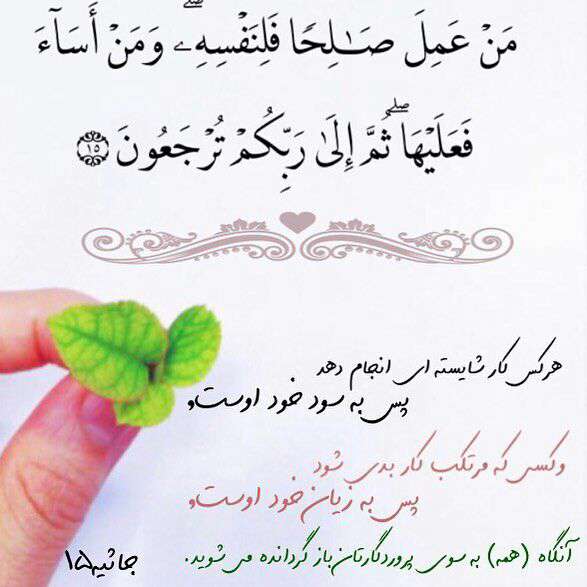 مَنْ عَمِلَ صَـٰلِحًا فَلِنَفْسِهِۦ ۖ وَمَنْ أَسَآءَ
فَعَلَيْهَا ۖ ثُمَّ إِلَىٰ رَبِّكُمْ تُرْجَعُونَ ١٥
هرکس کار شایسته ای انجام دهد
پس به سود خود اوست،
وکسی که مرتکب کار بدی شود
پس به زیان خود اوست،
آنگاه (همه) به سوی پروردگارتان باز گردانده می شوید.
جاثیه ۱۵